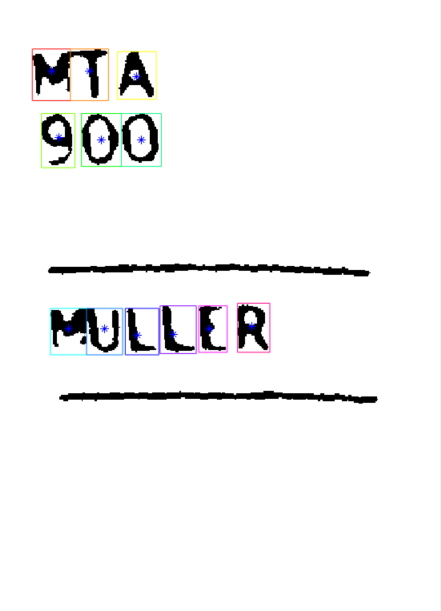 MTA
900
MULLER